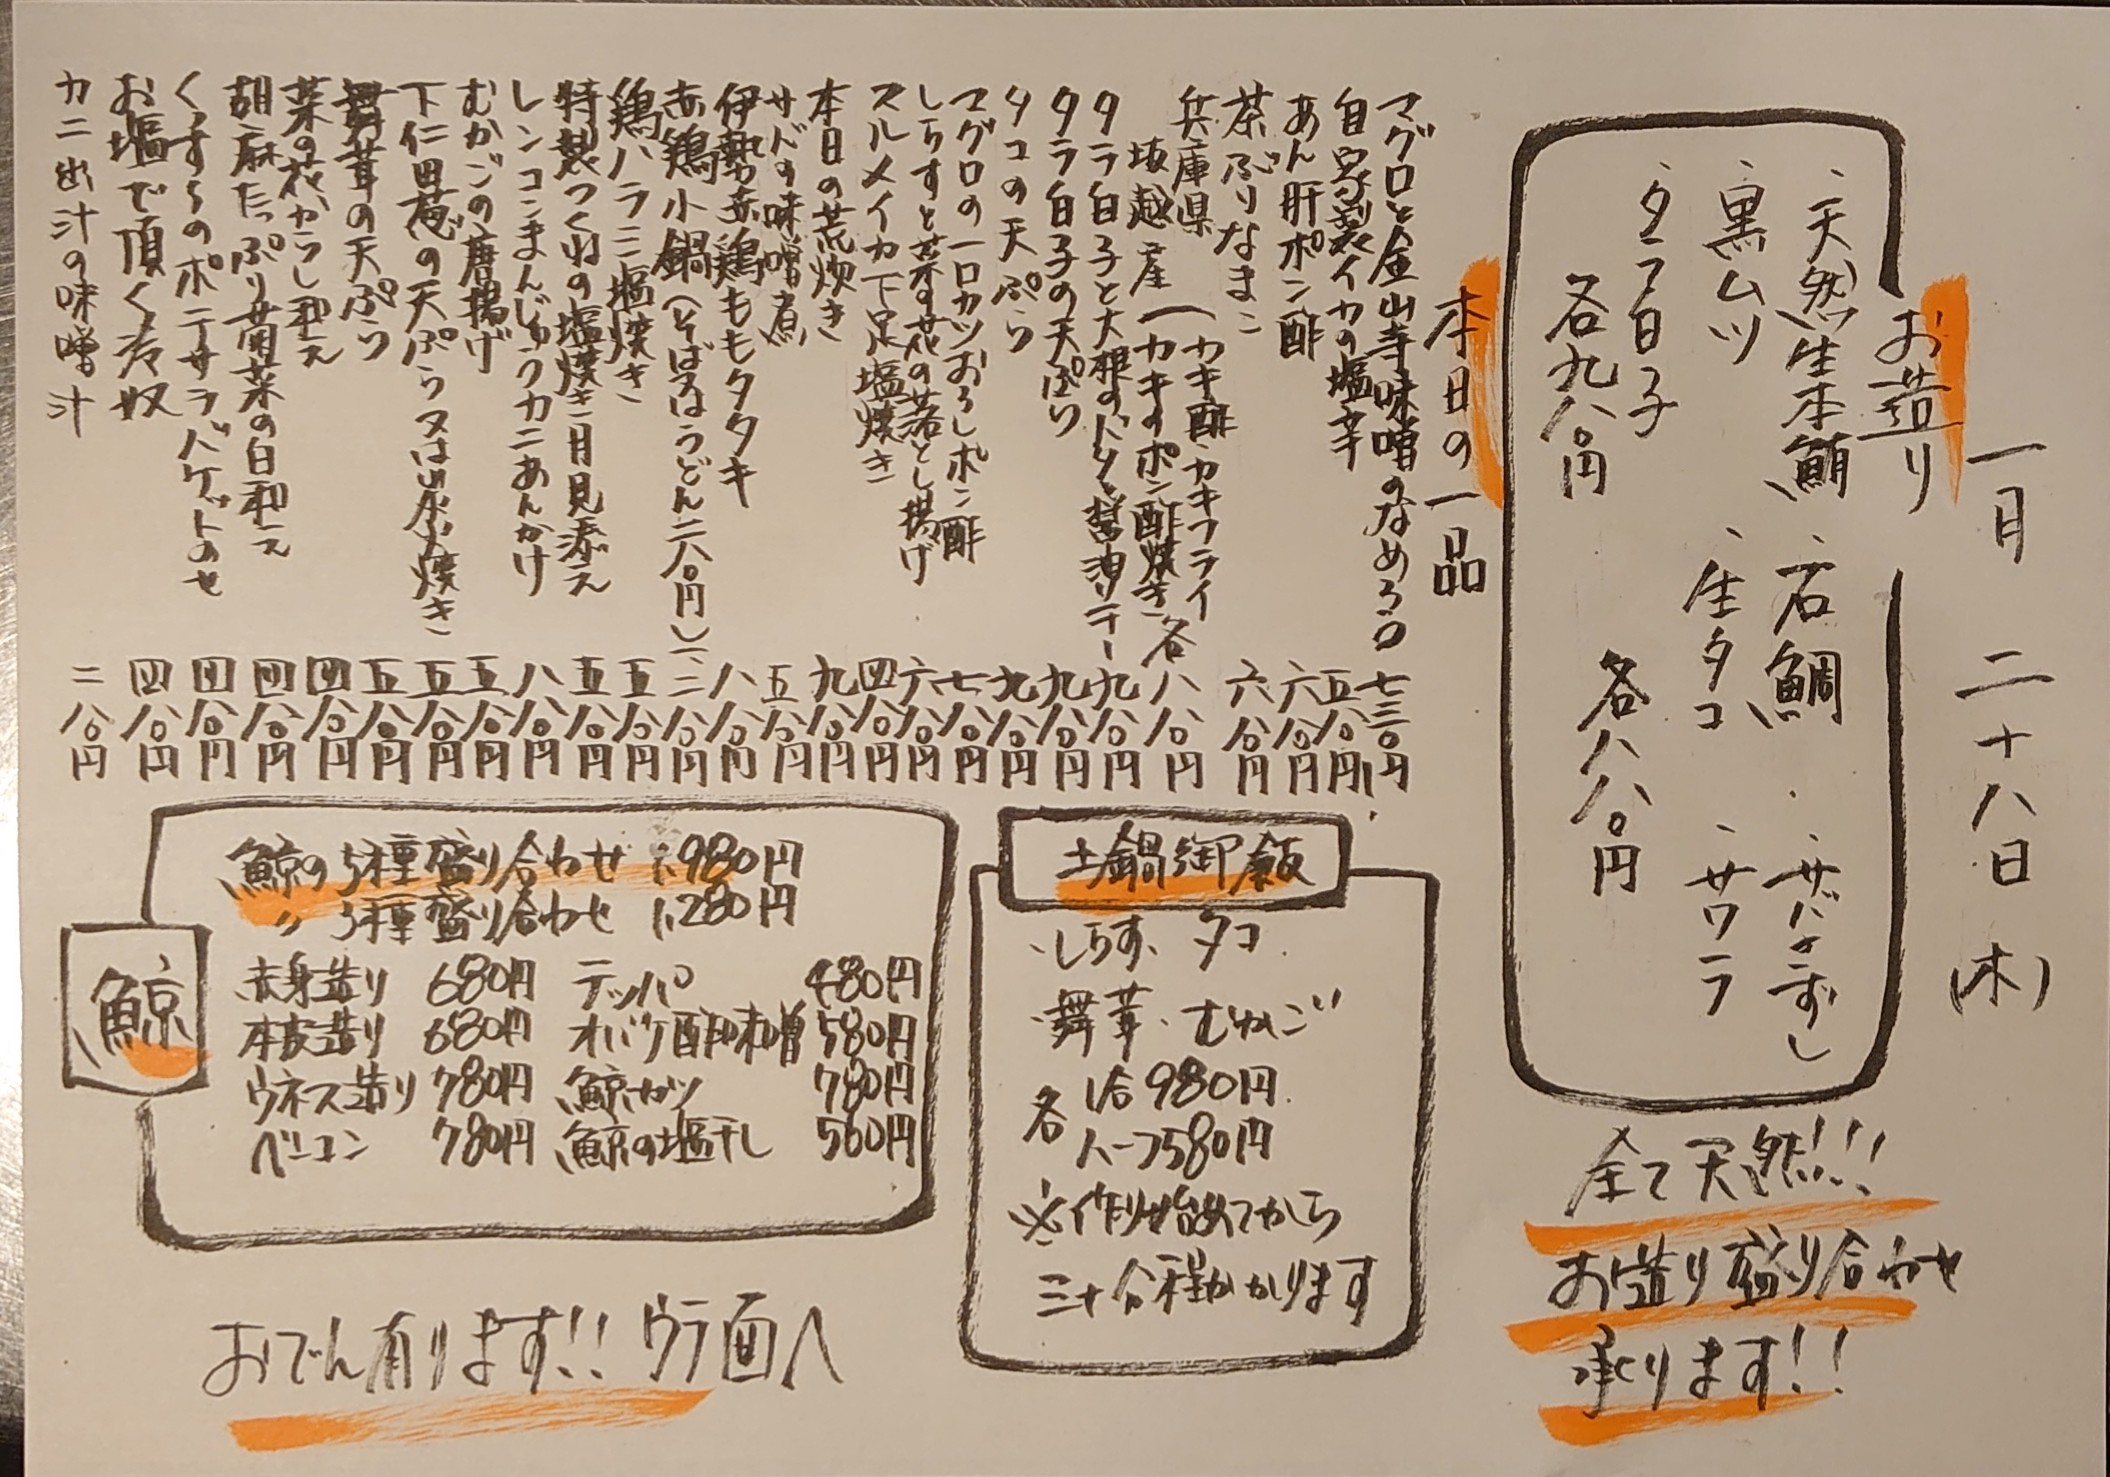 一月二十八日(木)
お造り
・天然生本鮪 ・石鯛 ・サバきずし
・黒ムツ ・生タコ ・サワラ
・タラ白子
各九八〇円 各八八〇円
全て天然!!!
お造り盛り合わせ
承ります!!
本日の一品
マグロと金山寺味噌のなめろう 七三〇円
自家製イカの塩辛 五八〇円
あん肝ポン酢 六八〇円
茶ぶりなまこ 六八〇円
兵庫県 (カキ酢・カキフライ 各八八〇円
坂越産 (カキのポン酢焼き
タラ白子と大根のバター醤油ソテー 九八〇円
タラ白子の天ぷら 九八〇円
タコの天ぷら 九八〇円
マグロの一口カツおろしポン酢 七八〇円
しらすと菜の花の落とし揚げ 六八〇円
スルメイカ下足塩焼き 四八〇円
本日の荒炊き 九八〇円
サバの味噌煮 五八〇円
伊勢赤鶏ももタタキ 八八〇円
赤鶏小鍋(そば又はうどん二八〇円) 一、二八〇円
鶏ハラミ塩焼き 五八〇円
特製つくねの塩焼き 月見添え 五八〇円
レンコンまんじゅうカニあんかけ 八八〇円
むかごの唐揚げ 五八〇円
下仁田葱の天ぷら又は炭火焼き 五八〇円
舞茸の天ぷら 五八〇円
菜の花からし和え 四八〇円
胡麻たっぷり菊菜の白和え 四八〇円
くずきのポテサラバゲットのせ 四八〇円
お塩で頂く冷奴 四八〇円
カニ出汁の味噌汁 二八〇円
土鍋御飯
・しらす・タコ
・舞茸・むかご
各 1合980円
ハーフ580円
※作り始めてから
三十分程かかります
鯨
鯨の5種盛り合わせ 1,980円
〃 3種盛り合わせ 1,280円
赤身造り 680円 テッパ 480円
本皮造り 680円 オバケ酢味噌 580円
ウネス造り 780円 鯨カツ 780円
ベーコン 780円 鯨の塩干し 560円
おでん有ります!! ウラ面へ